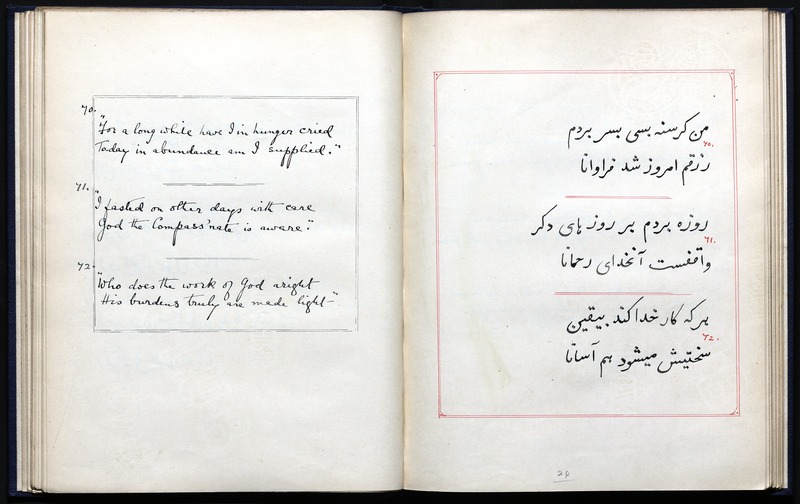 70.
"For a long while have I in hunger cried
Today in abundance am I supplied."
71.
"I fasted on other days with care
God the Compass'nate is aware."
72.
"Who does the work of God aright
His burdens truly are made light"
من کرسنه بسی بسر بردم
70.
رزقم امروز شد فراوانا
روزه بردم بر روز های دکر
71.
واقفست آنخدای رحمانا
هر که کار خدا کند بیقین
72.
سختیش میشود هم آسانا
24